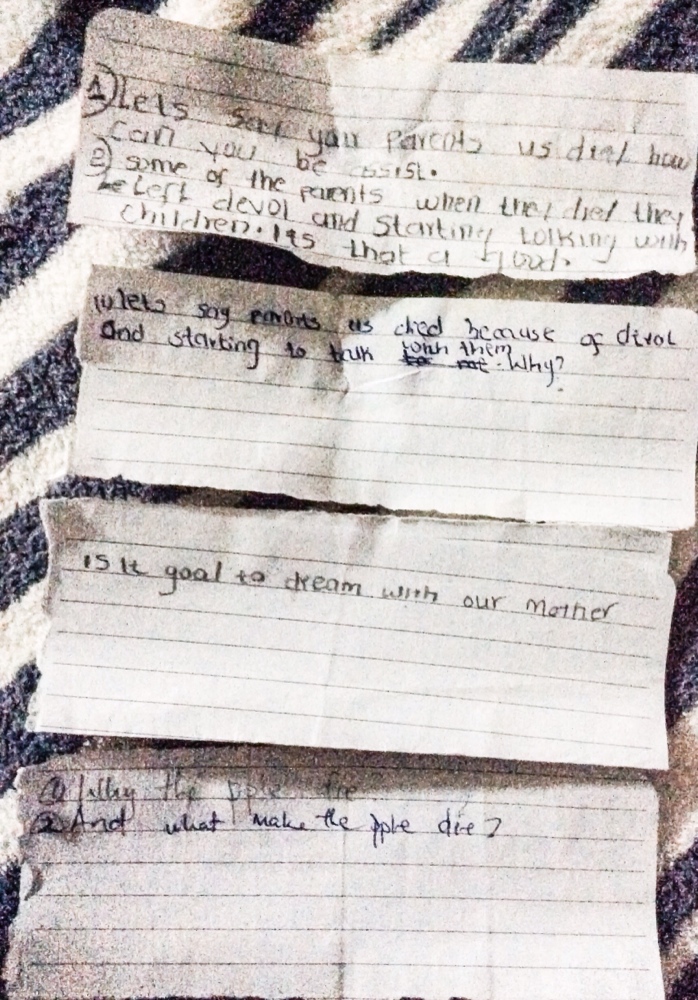 1) lets say your parents us died how
can you be assist.
2) some of the parents when they died they
left devol and starting tolking with
children. Its that a good.
1) lets say parents us died because of divol
and starting to talk with them. Why?
is it goal to dream with our mother
1) Why the pple die
2) And what make the pple die?